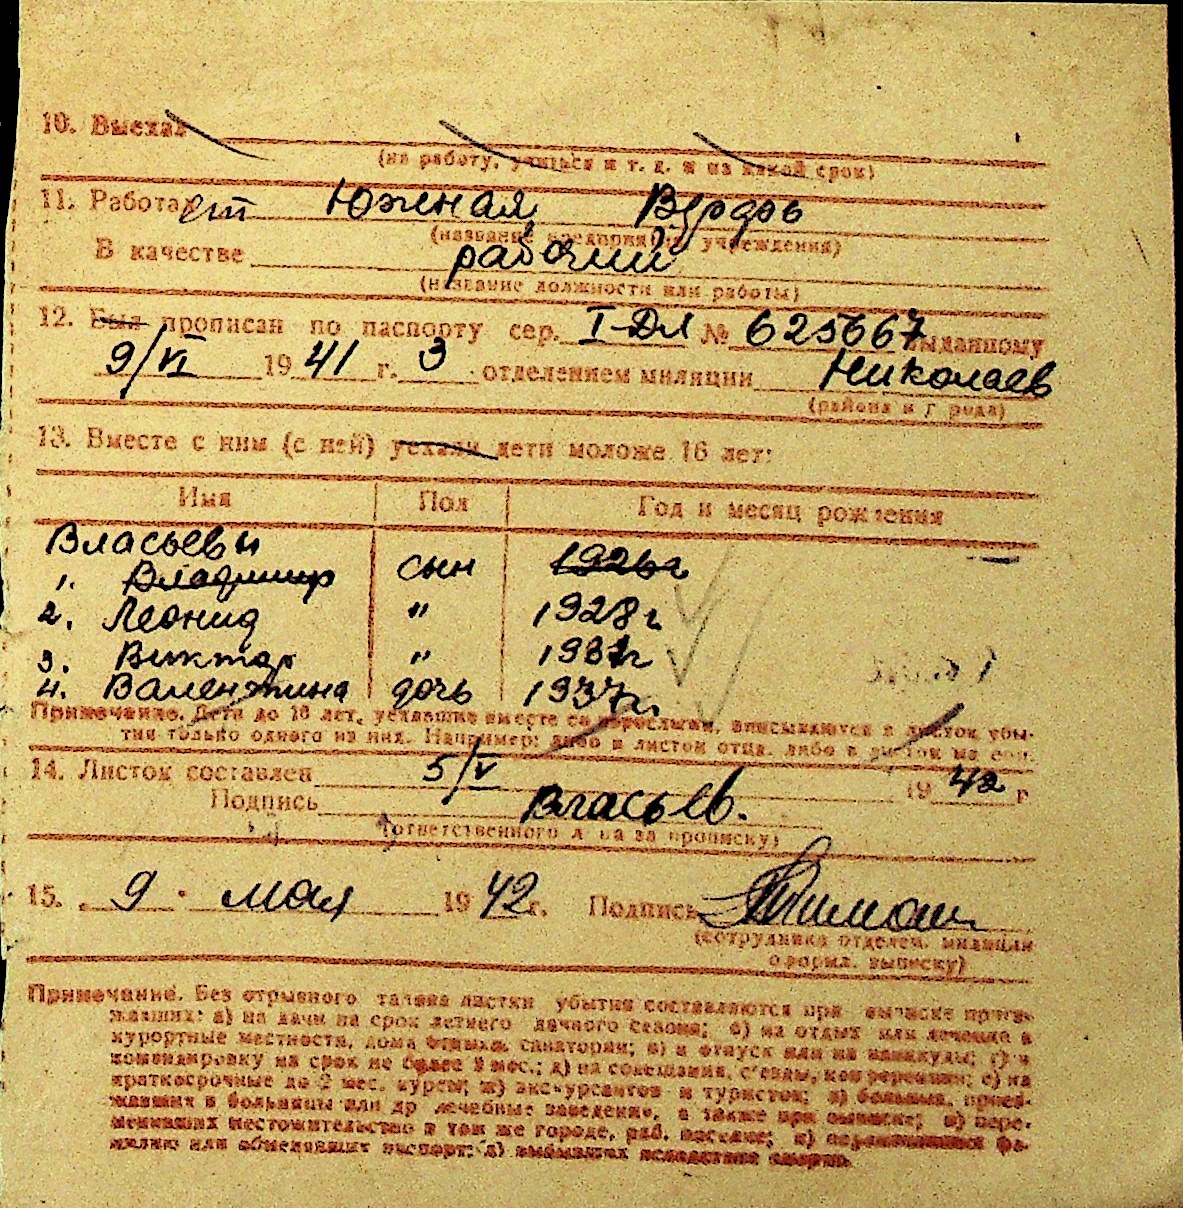 10. Выехал
(на работу, учиться и т. д. и на какой срок)
11. Работает Южная Верфь
(название предприятия, учреждения)
В качестве рабочий
(название должности или работы)
12. Был прописан по паспорту сер. I-ДЛ № 625667 выданному
9/VI 1941 г. 3 отделением милиции Николаев
(района и города)
13. Вместе с ним (с ней) уехали дети моложе 16 лет:
Имя Пол Год и месяц рождения
Власьевы
1. Владимир сын 1926г
2. Леонид " 1928г
3. Виктор " 1931г
4. Валентина дочь 1937г.
Примечание. Дети до 16 лет, уехавшие вместе со взрослыми, вписываются в листок убы-
тия только одного из них. Например: либо в листок отца, либо в листок матери.
14. Листок составлен 5/V 1942 г
Подпись Власьев.
(ответственного лица за прописку)
15. 9 мая 1942г. Подпись
(сотрудника отделен. милиции
оформл. выписку)
Примечание. Без отрывного талона листки убытия составляются при выписке приез-
жавших: а) на дачи на срок летнего дачного сезона; б) на отдых или лечение в
курортные местности, дома отдыха, санатории; в) в отпуск или на каникулы; г) в
командировку на срок не более 2 мес.; д) на совещания, съезды, конференции; е) на
краткосрочные до 2 мес. курсы; ж) экскурсантов и туристов; з) больных, приез-
жавших в больницы или др лечебные заведения, а также при выписке; и) пере-
менивших местожительство в том же городе, раб. поселке; к) переменивших фа-
милию или обменявших паспорт; л) выбывших вследствие смерти.